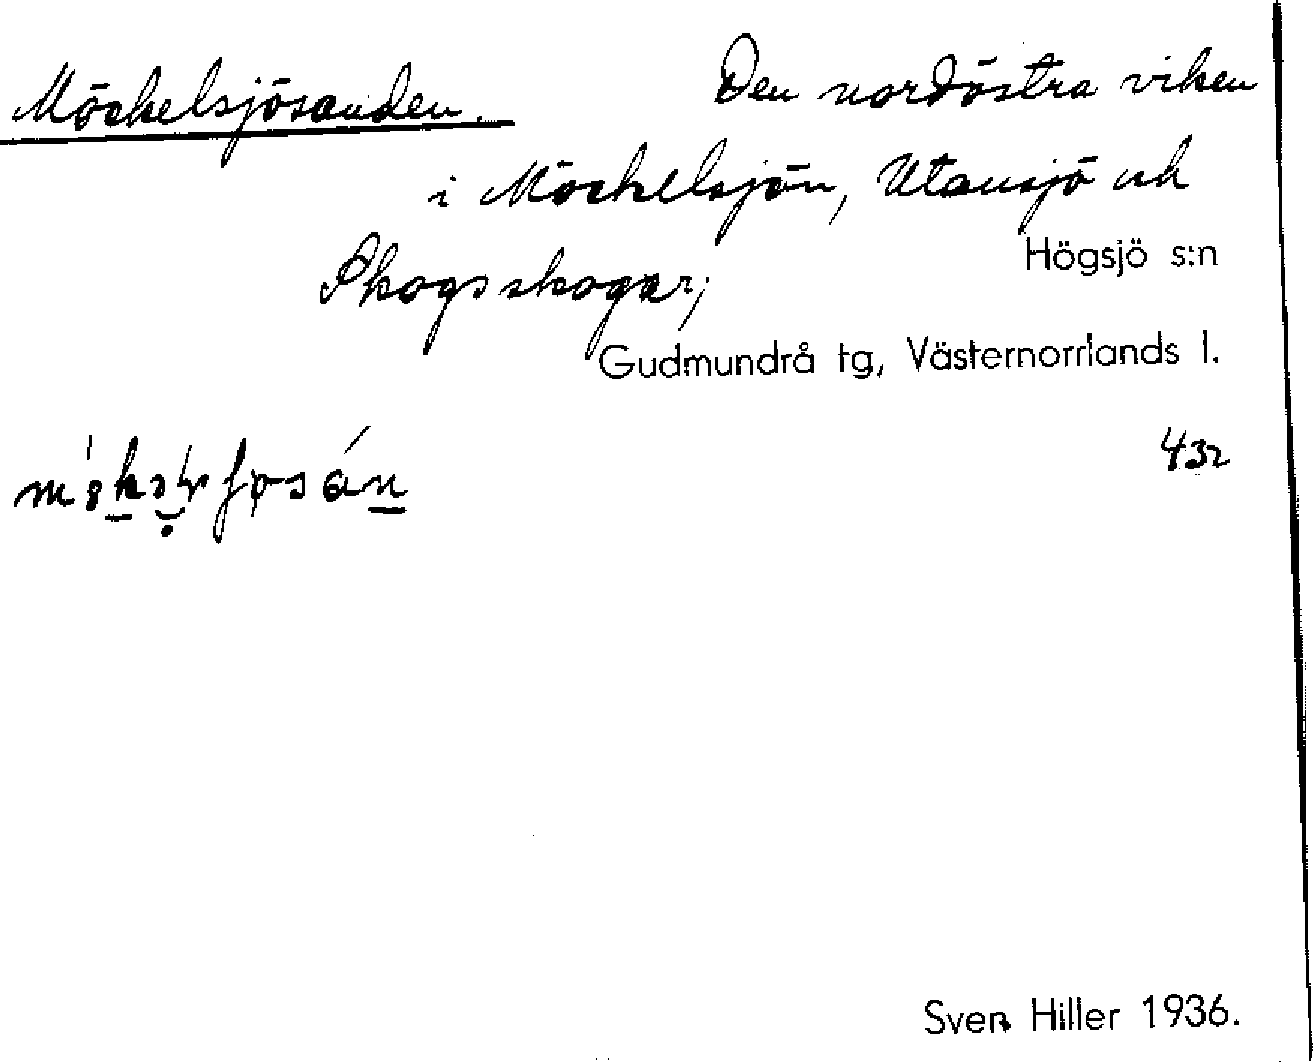 Möckelsjösanden.
Den nordöstra viken
i Möckelsjön, Utansjö och
Skogs skogar;
Högsjö s:n
Gudmundrå tg, Västernorrlands l.
432
Sven Hiller 1936.